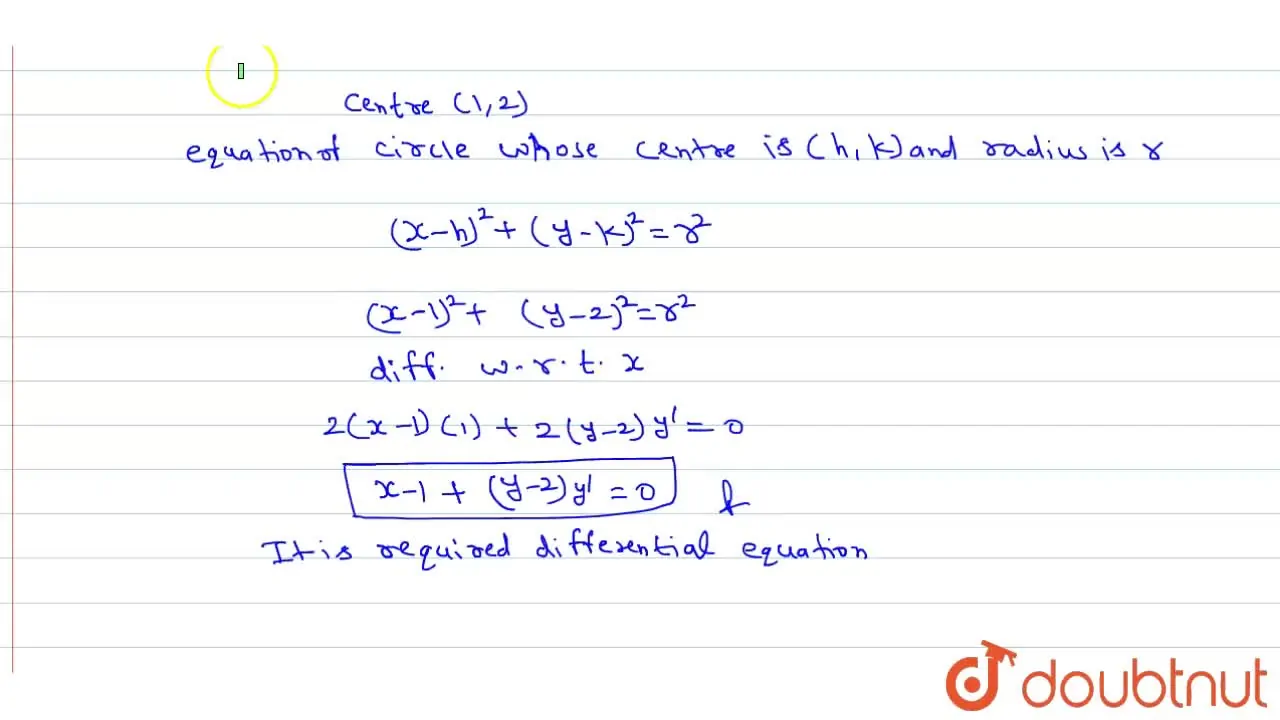 Centre (1,2)
equation of circle whose centre is (h,k) and radius is r
(x-h)²+(y-k)²=r²
(x-1)²+ (y-2)²=r²
diff. w.r.t. x
2(x-1)(1)+2(y-2)y'=0
x-1+(y-2)y'=0
It is required differential equation
doubtnut